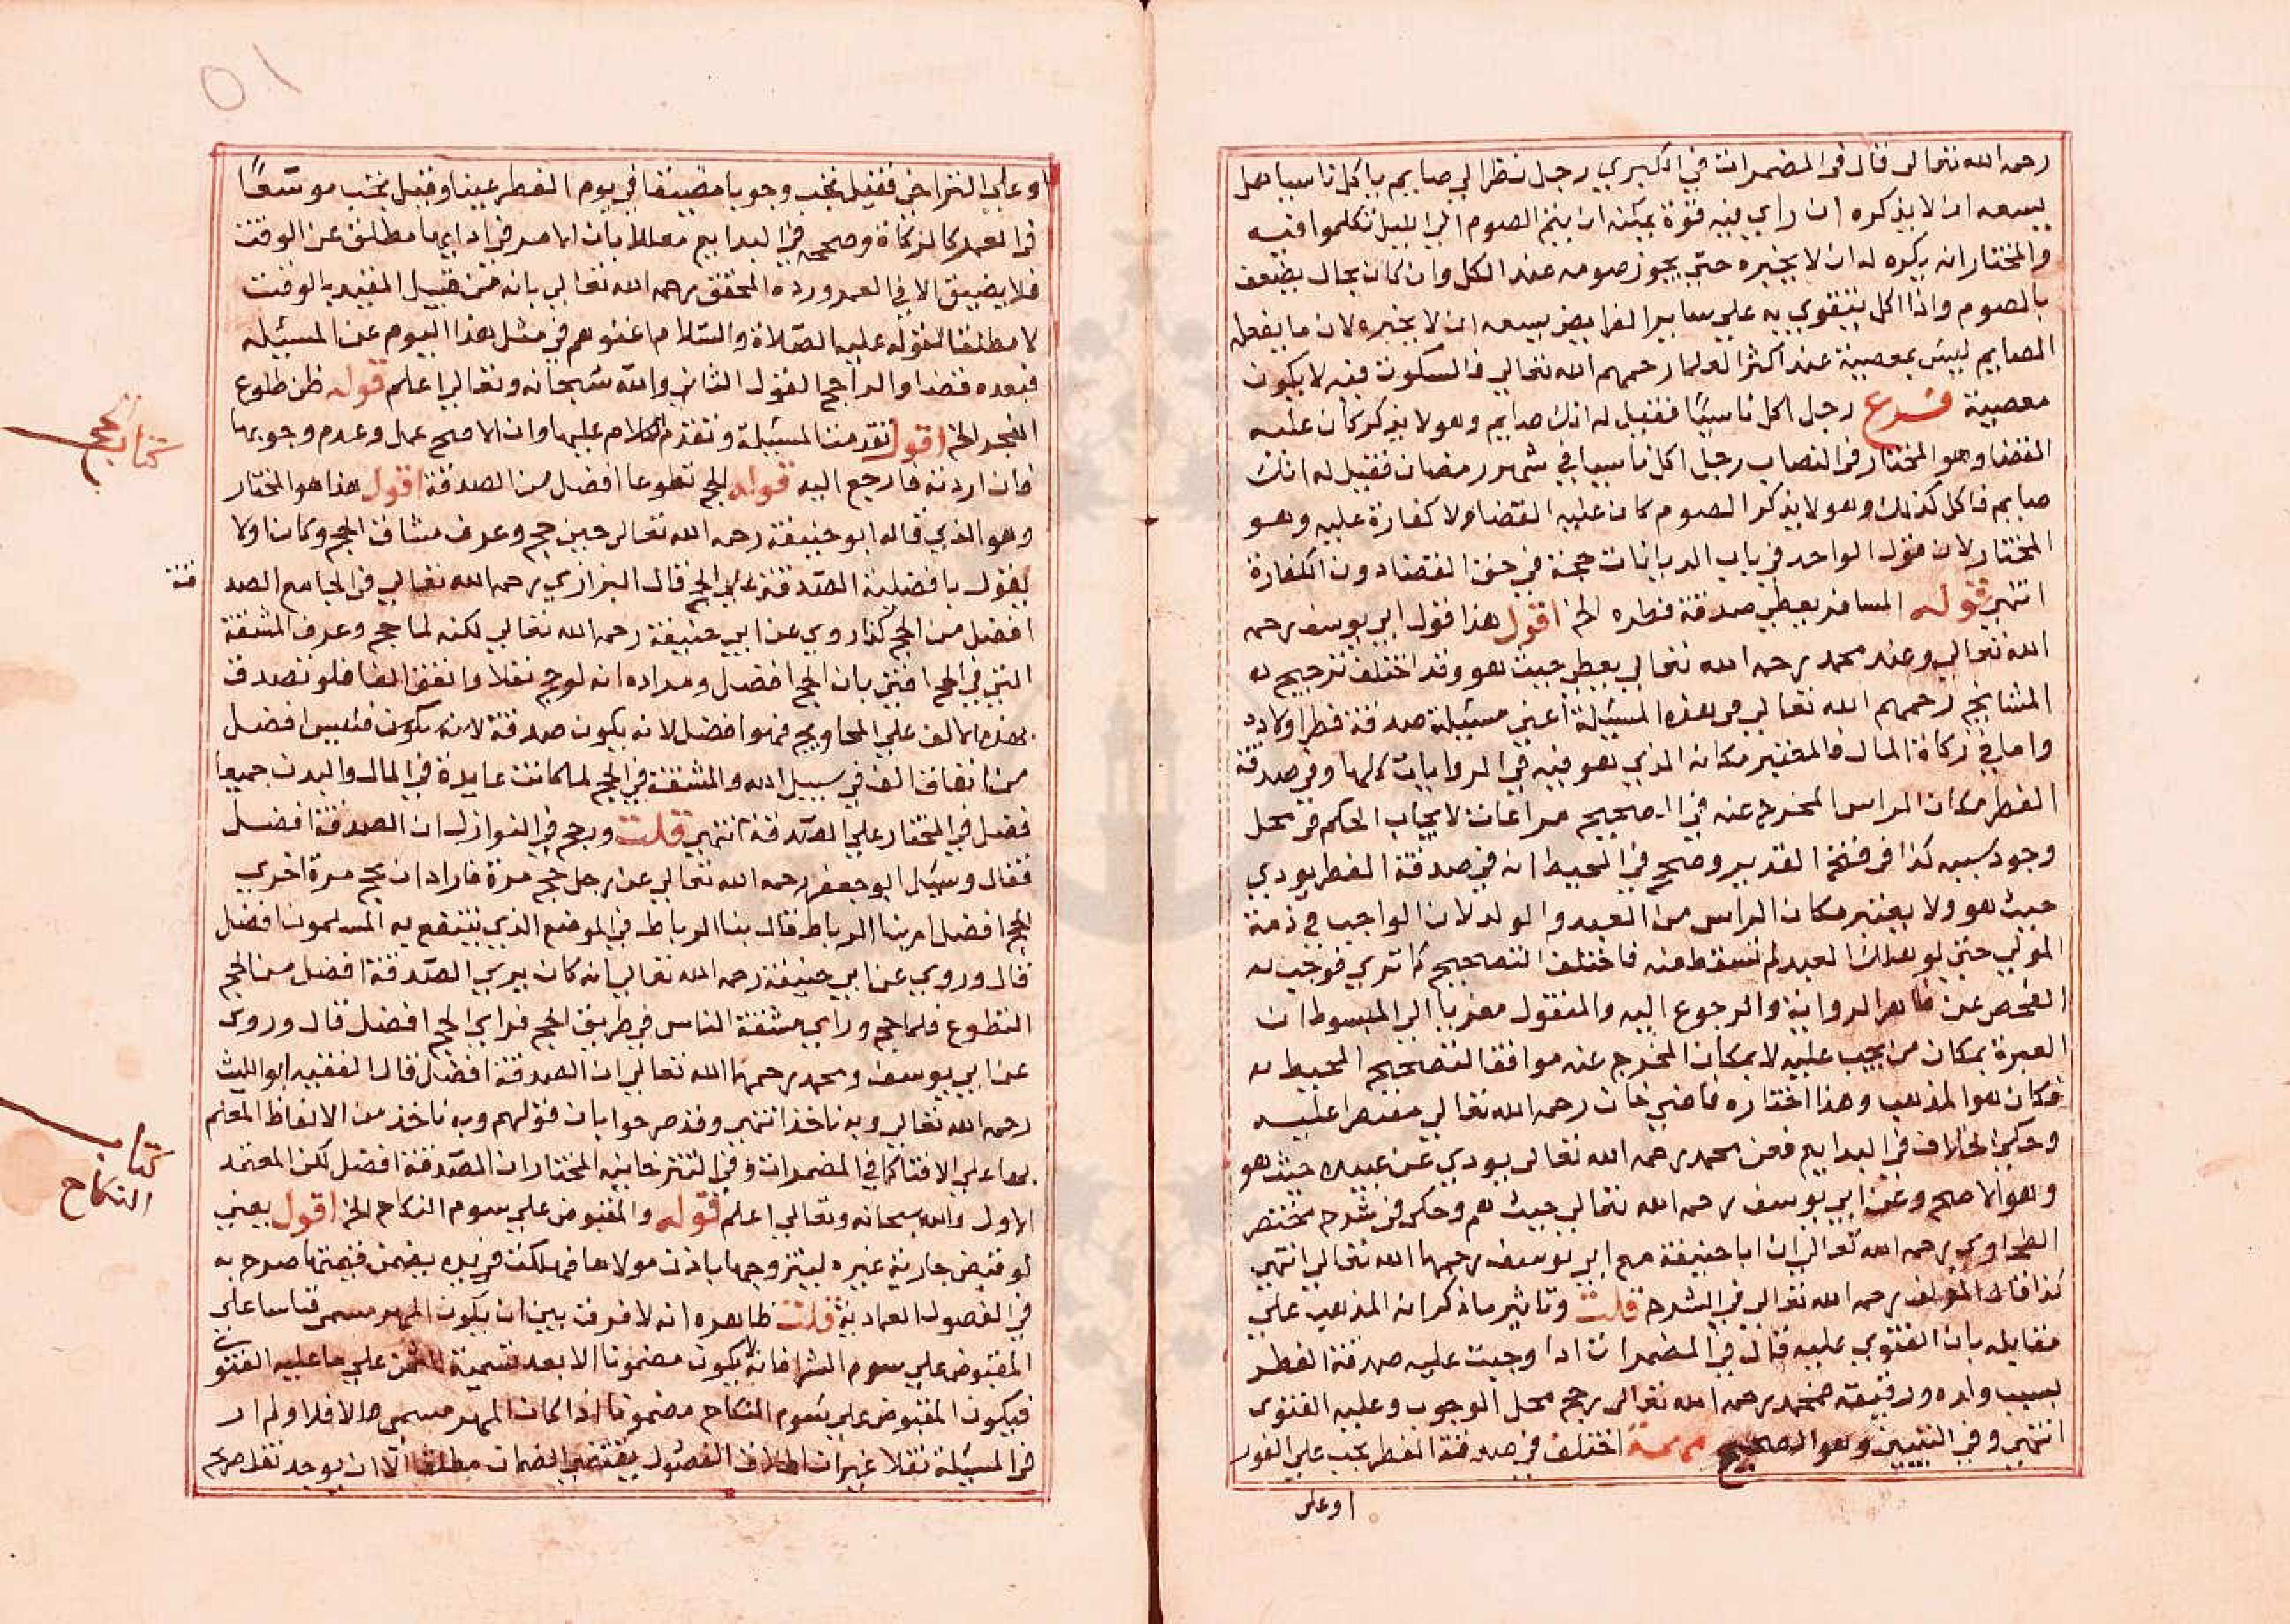 رحمه الله تعالى قال في المضمرات في الكبري رجل نظر الي صايم ياكل ناسيا هل
يسعه ان لا يذكره ان راي فيه قوة يمكنه ان يتم الصوم الي الليل تكلموا فيه
والمختار انه يكره له ان لا يخبره حتي يجوز صومه عند الكل وان كان بحال يضعف
بالصوم واذا اكل يتقوي به علي ساير الفرايض يسعه ان لا يخبره لان ما يفعل
الصايم ليس بمعصية عند اكثر العلما رحمهم الله تعالي فالسكوت فيه لا يكون
معصية فرع رجل اكل ناسيًا فقيل له انك صايم وهو لا يذكر كان عليه
القضا وهو المختار في النصاب رجل اكل ناسيا في شهر رمضان فقيل له انك
صايم فاكل كذلك وهو لا يذكر الصوم كان عليه القضا ولا كفارة عليه وهو
المختار لان قول الواحد في باب الديانات حجة في حق القضا دون الكفارة
انتهي قوله المسافر يعطي صدقة فطره الخ اقول هذا قول ابي يوسف رحمه
الله تعالي وعند محمد رحمه الله تعالي يعطي حيث هو وقد اختلف ترجيح
المشايخ رحمهم الله تعالي في هذه المسئلة اعني مسئلة صدقة فطر اولاده
واما في زكاة المال فالمعتبر مكانه الذي هو فيه في الروايات كلها وفي صدقة
الفطر مكان الراس المخرج عنه في الصحيح مراعات لايجاب الحكم في محل
وجود سببه كذا في فتح القدير وصحح في المحيط انه في صدقة الفطر يودي
حيث هو ولا يعتبر مكان الراس من العبد والولد لان الواجب في ذمة
المولي حتي لو هلك العبد لم تسقط عنه فاختلف التصحيح كما تري فوجب
الفحص عن ظاهر الرواية والرجوع اليه والمنقول معزيا الي المبسوط ان
العبرة بمكان من يجب عليه لا بمكان المخرج عنه موافقا لتصحيح المحيط
فكان هو المذهب وهذا اختاره قاضي خان رحمه الله تعالي مقتصرا عليه
وحكي الخلاف في البدايع فعن محمد رحمه الله تعالي يودي عن عبيده حيث هو
وهو الاصح وعن ابي يوسف رحمه الله تعالي حيث هم وحكي في شرح مختصر
الطحاوي رحمه الله تعالي ان ابا حنيفة مع ابي يوسف رحمهما الله تعالي انتهي
كذا قال المولف رحمه الله تعالي في الشرح قلت وتاثير ما ذكر انه المذهب علي
مقابله بان الفتوي عليه قال في المضمرات اذا وجبت عليه صدقة الفطر
بسبب ولده ورقيقه فمحمد رحمه الله تعالي رجح محل الوجوب وعليه الفتوي
انتهي وفي التبيين وهو الصحيح اختلف في صدقة الفطر يجب علي الفور
او علي
او علي التراخي فقيل تجب وجوبا مضيقا في يوم الفطر عينا وقيل تجب موسعًا
في العمر كالزكاة وصححه في البدايع معللا بان الامر في ادايها مطلق عن الوقت
فلا يضيق الا في العمر ورده المحقق رحمه الله تعالي بانه من قبيل المقيد بالوقت
لا مطلقا لقوله عليه الصلاة والسلام اغنوهم في مثل هذا اليوم عن المسئله
فبعده قضا والراجح القول الثاني والله سبحانه وتعالي اعلم قوله ظن طلوع
الفجر الخ اقول تقدمت المسئلة وتقدم الكلام عليها وان الاصح عمل وعدم وجوبها
فان اردته فارجع اليه قوله الحج تطوعا افضل من الصدقة اقول هذا هو المختار
كتاب الحج
وهو الذي قاله ابو حنيفة رحمه الله تعالي حين حج وعرف مشاق الحج وكان اولا
يقول بافضلية الصدقة علي الحج قال البزازي رحمه الله تعالي في الجامع الصد
قة
افضل من الحج كذا روي عن ابي حنيفة رحمه الله تعالي لكنه لما حج وعرف المشقة
التي في الحج افتي بان الحج افضل ومراده انه لو حج نفلا وانفق الفا فلو تصدق
بهذه الالف علي المحاويج فهو افضل لا انه يكون صدقة لانه يكون فليس افضل
من انفاق الف في سبيل الله والمشقة في الحج لما كانت عايدة في المال والبدن جميعا
فضل في المختار علي الصدقة انتهي قلت ورجح في النوازل ان الصدقة افضل
فقال وسئل ابو جعفر رحمه الله تعالي عن رجل حج مرة فاراد ان يحج مرة اخري
الحج افضل ام بنا الرباط قال بنا الرباط في الموضع الذي ينتفع به المسلمون افضل
قال وروي عن ابي حنيفة رحمه الله تعالي انه كان يري الصدقة افضل من الحج
التطوع فلما حج وراي مشقة الناس في طريق الحج فراي الحج افضل قال وروي
عن ابي يوسف ومحمد رحمهما الله تعالي ان الصدقة افضل قال الفقيه ابو الليث
رحمه الله تعالي وبه ناخذ انتهي وقد صرحوا بان قولهم وبه ناخذ من الالفاظ المعلم
بها علي الافتا كما في المضمرات وفي التتر خانيه المختار ان الصدقة افضل لكن المعتمد
الاول والله سبحانه وتعالي اعلم قوله والمقبوض علي سوم النكاح الخ اقول يعني
كتاب النكاح
لو قبض جارية غيره ليتزوجها باذن مولاها فهلكت في يده يضمن قيمتها صرح به
في الفصول العمادية قلت ظاهره انه لا فرق بين ان يكون المهر مسمي قياسا علي
المقبوض علي سوم الشرا فانه لا يكون مضمونا الا بعد تسمية الثمن علي ما عليه الفتوي
فيكون المقبوض علي سوم النكاح مضمونا اذا كان المهر مسمي والا فلا ولم ار
في المسئلة نقلا غير ان اطلاق الفصول يقتضي الضمان مطلقا الا ان يوجد نقل صريح